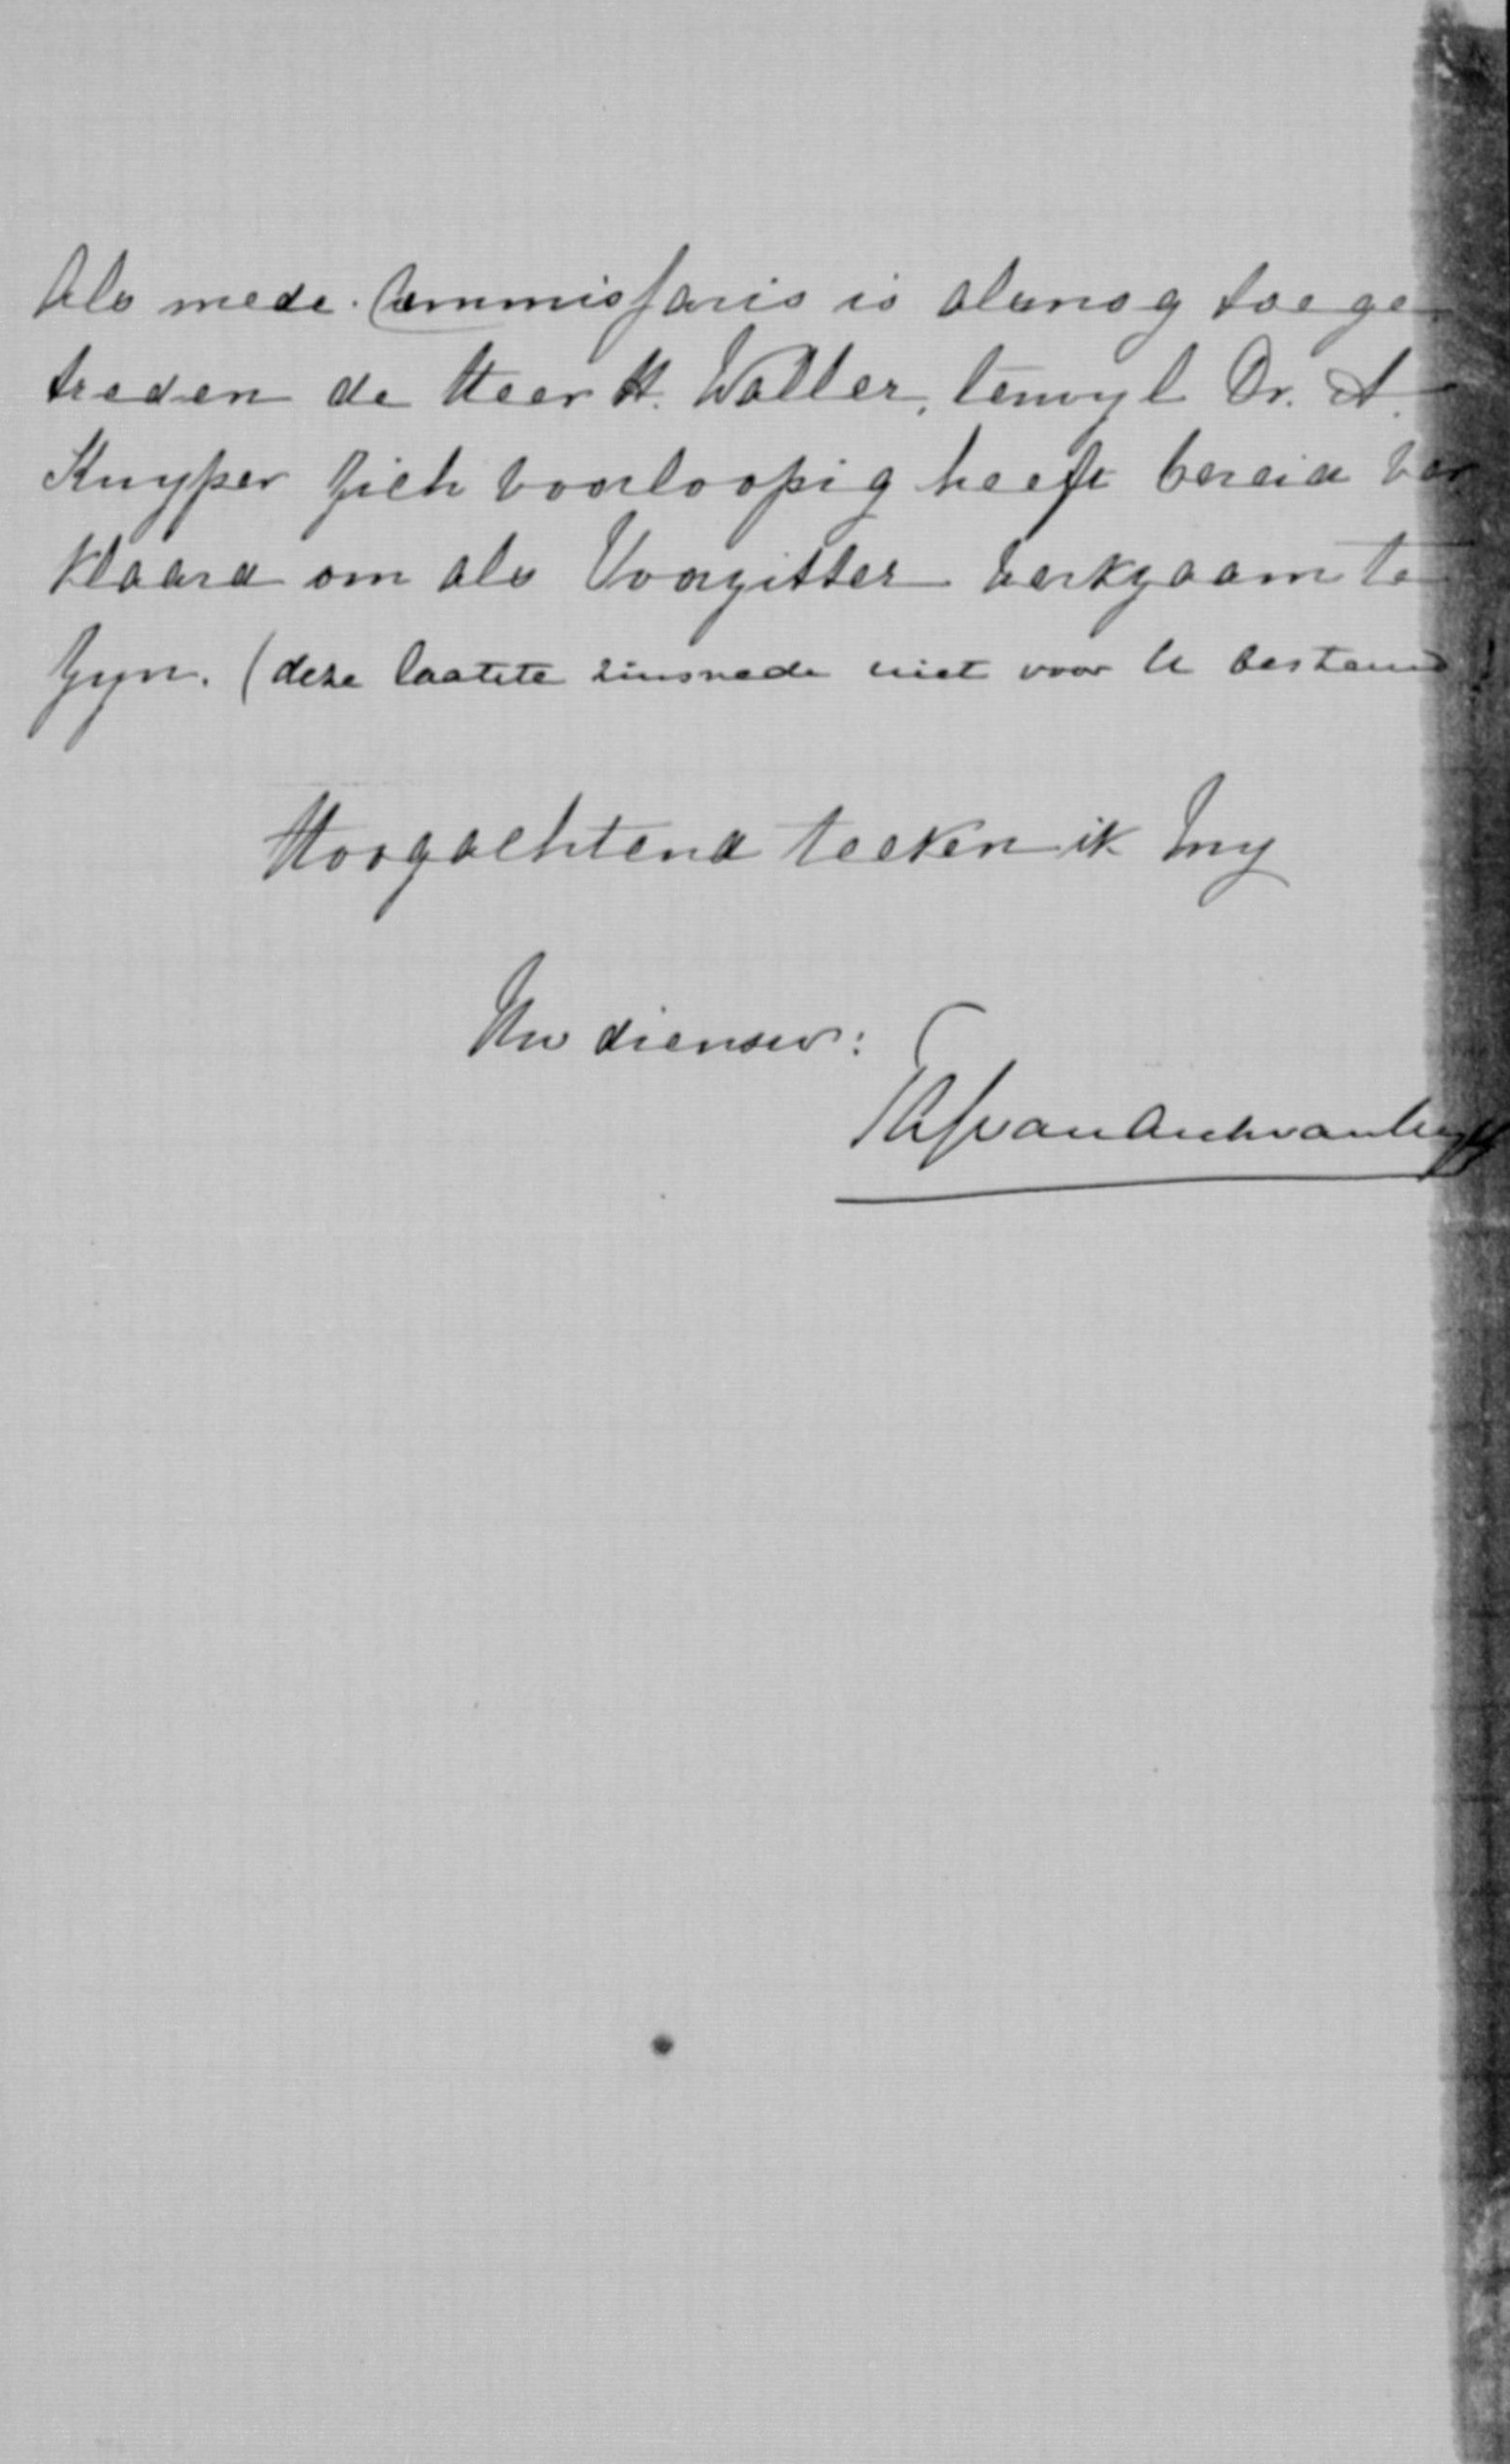 Als mede-Commissaris is alsnog toege-
treden de Heer H. Waller, terwyl Dr. A.
Kuyper zich voorloopig heeft bereid ver
klaard om als Voorzitter werkzaam te
zyn. (deze laatste zinsnede niet voor U bestemd!
Hoogachtend teeken ik my
Uw dienaar: